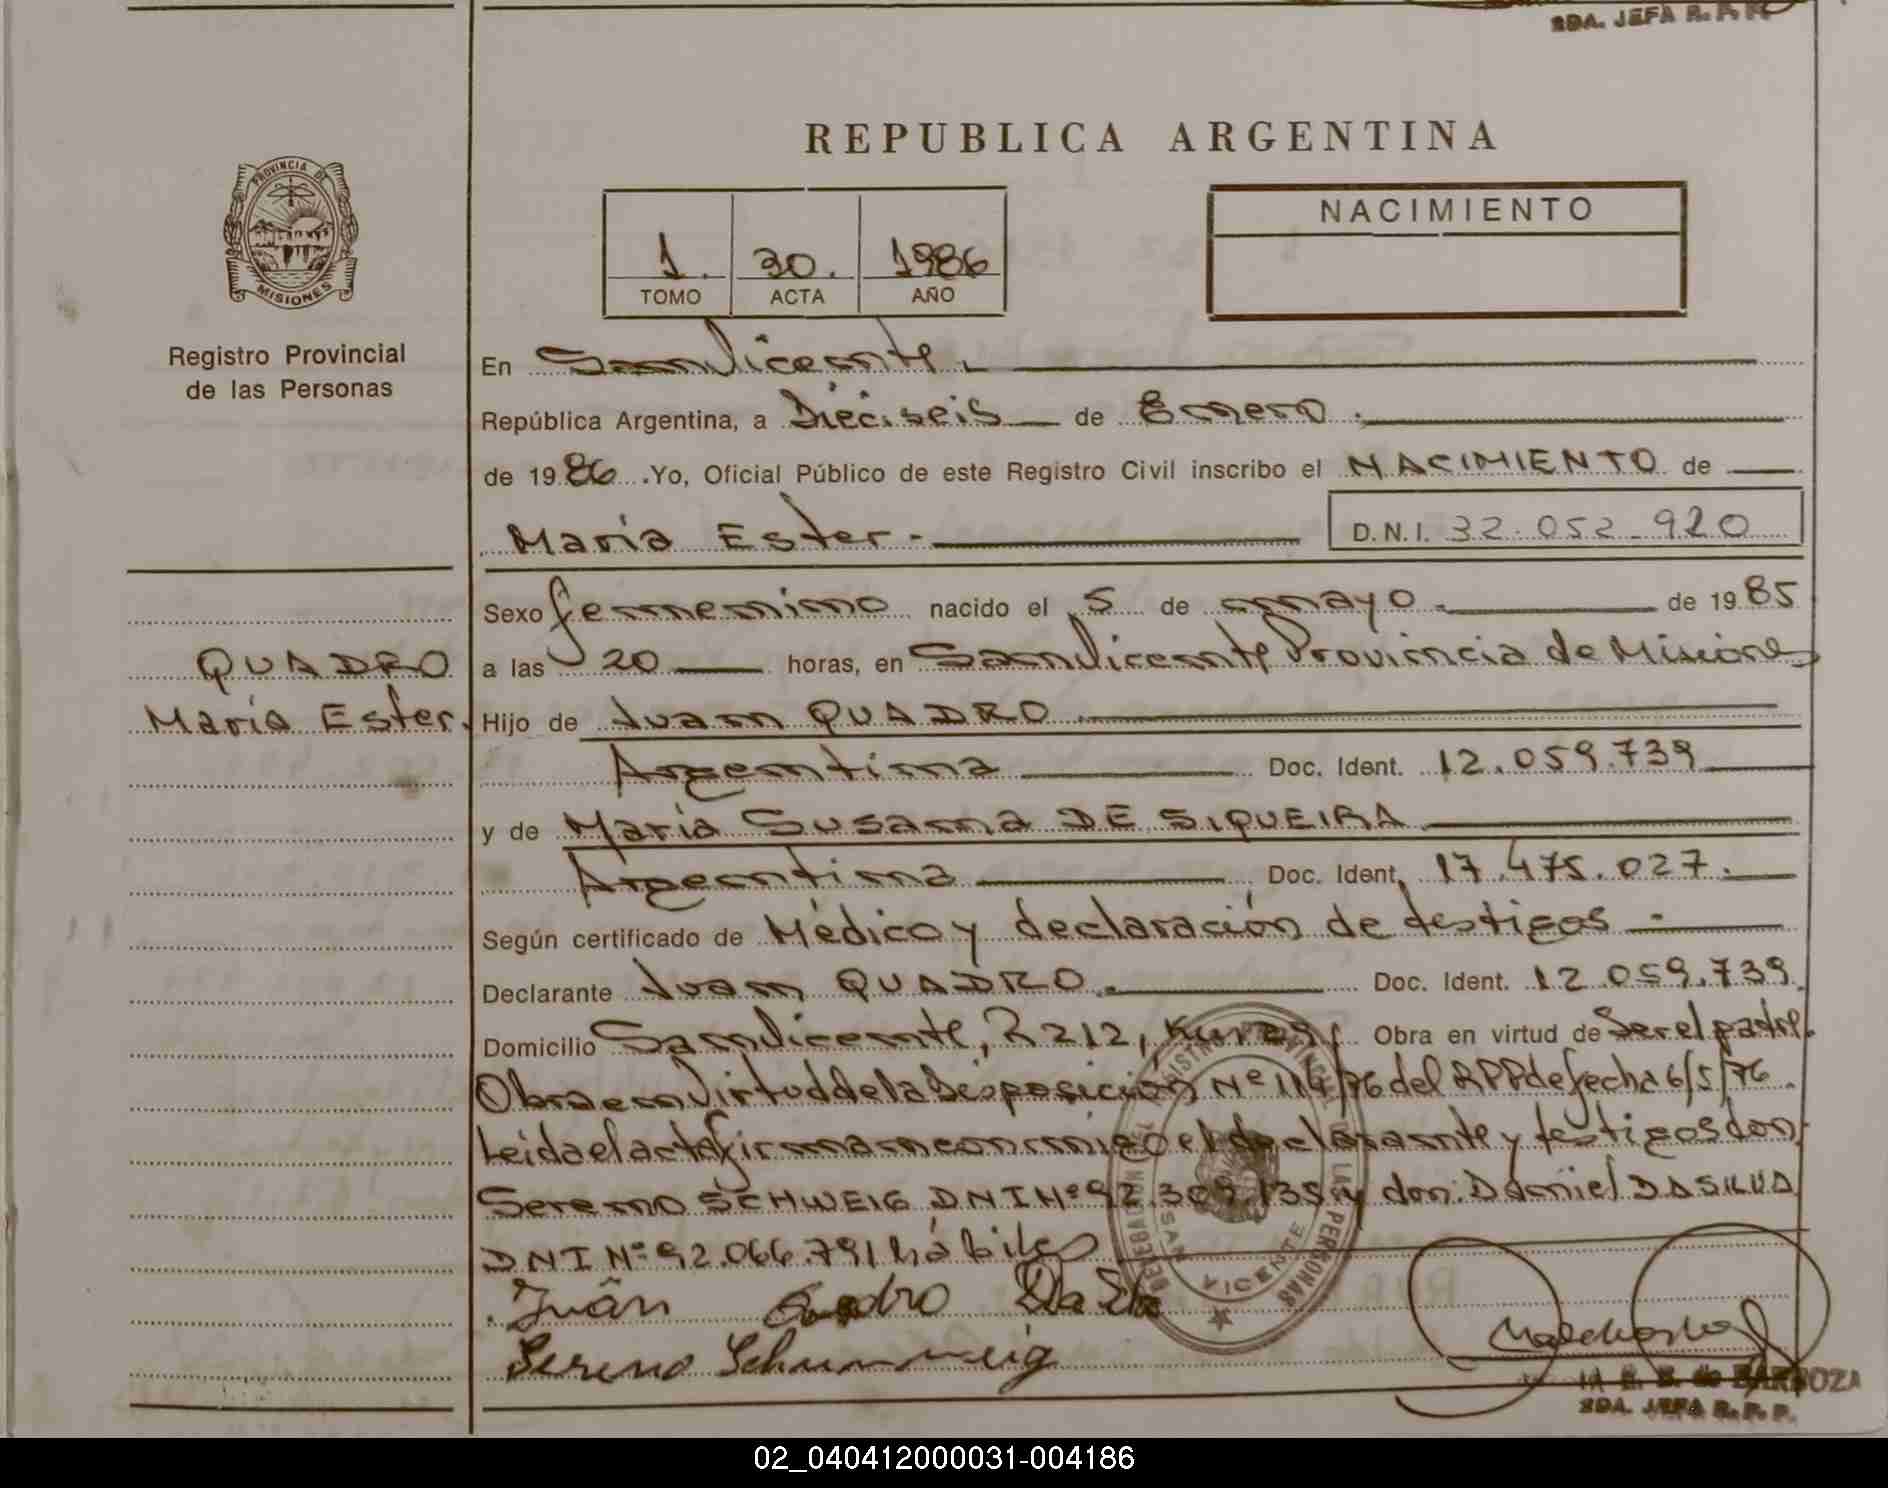 2DA. JEFA R. P. P.
REPUBLICA ARGENTINA
PROVINCIA DE
MISIONES
Registro Provincial
de las Personas
1. 30. 1986
TOMO ACTA AÑO
NACIMIENTO
En San Vicente.
República Argentina, a Dieciseis de Enero.
de 1986. Yo, Oficial Público de este Registro Civil inscribo el NACIMIENTO de
María Ester.-
D.N.I. 32.052.920
QUADRO
María Ester.
Sexo femenino nacido el 5 de mayo. de 1985
a las 20 horas, en San Vicente Provincia de Misiones
Hijo de Juan QUADRO.
Argentina Doc. Ident. 12.059.739
y de María Susana DE SIQUEIRA
Argentina Doc. Ident. 17.475.027.
Según certificado de Médico y declaración de testigos.-
Declarante Juan QUADRO. Doc. Ident. 12.059.739.
Domicilio San Vicente, R 212, Obra en virtud de Ser el padre.
Obra en Virtud de la Disposición Nº 114/76 del RPP de fecha 6/5/76.
Leida el acta firman conmigo el declarante y testigos don:
Sereno SCHWEIG DNI Nº 92.309.135 y don: Daniel DA SILVA
DNI Nº 92.066.791 hábiles
Juân Quadro Da Silva
Sereno Schunweig
DELEGACION DEL REGISTRO PROVINCIAL DE LAS PERSONAS
SAN VICENTE
de BARBOZA
2DA. JEFA R. P. P.
02_040412000031-004186